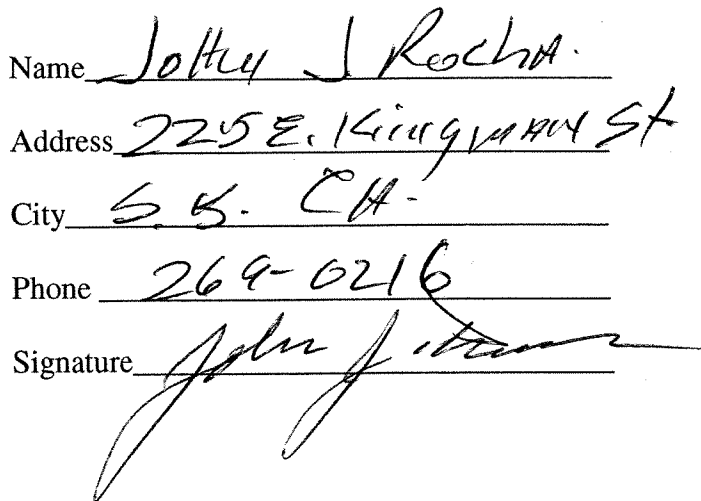 Name John J Rocha.
Address 225 E. Kingman St
City S.B. CA.
Phone 269-0216
Signature John J.